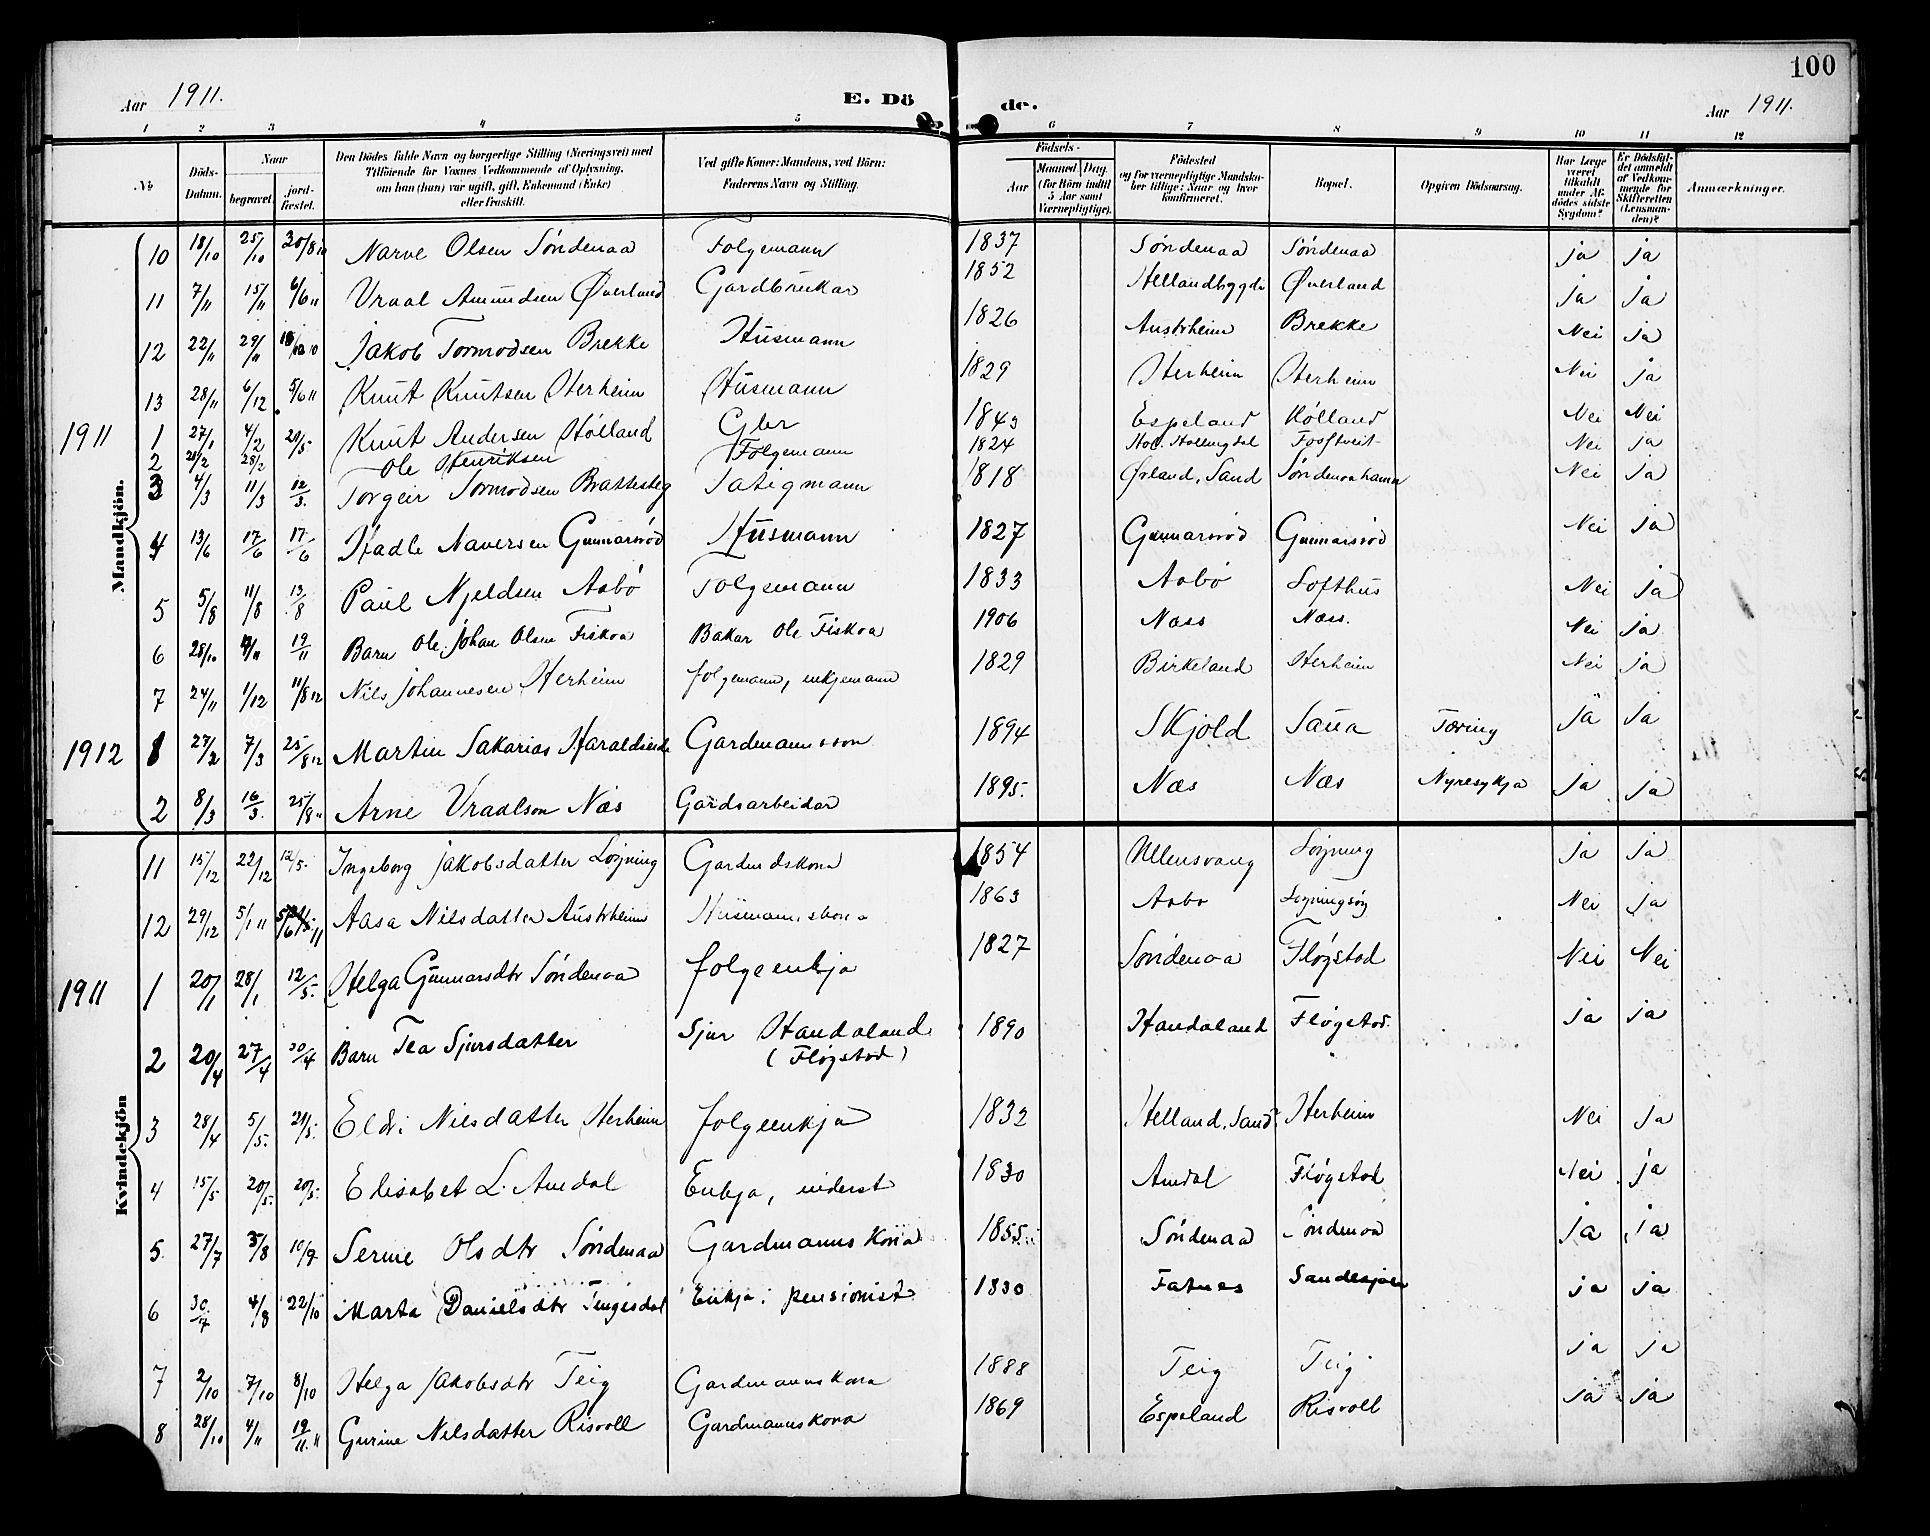 100
Aar 1911. E. Dö de. Aar 1911.
1 2 3 4 5 6 7 8 9 10 11 12
No Döds-Datum. Naar begravet. jord-fæstet. Den Dödes fulde Navn og borgerlige Stilling (Næringsvei) med Tilföiende for Voxnes Vedkommende af Oplysning, om han (hun) var ugift, gift, Enkemand (Enke) eller fraskilt. Ved gifte Koner: Mandens, ved Börn: Faderens Navn og Stilling. Födsels- Aar Maaned Dag. (for Börn indtil 5 Aar samt Værnepligtige). Födested og for værnepligtige Mandska-ber tillige: Naar og hvor konfirmeret. Bopæl. Opgiven Dödsaarsag. Har Læge været tilkaldt under Af-dödes sidste Sygdom? Er Dödsfal-det anmeldt af Vedkom-mende for Skifteretten (Lensman-den)? Anmærkninger.
Mandkjön.
10 18/10 25/10 Narve Olsen Söndenaa Folgemann 1837 Söndenaa Söndenaa ja ja
11 7/11 15/11 6/6 11 Vraal Amundsen Øverland Gardbrukar 1852 Hellandbygdi Øverland ja ja
12 22/11 29/11 Jakob Tormodsen Brekke Husmann 1826 Austrheim Brekke Nei ja
13 28/11 6/12 5/6 11 Knut Knutsen Herheim Husmann 1829 Herheim Herheim Nei ja
1911 1 27/1 4/2 20/5 Knut Andersen Hölland Gbr 1843 Espeland Hölland Nei Nei
2 28/2 Ole Henriksen Folgemann 1824 Hol. Hallingdal Nei ja
3 4/3 11/3 12/3. Torgeir Tormodsen Brattesteg Fatigmann 1818 Ørland, Sand Söndenaahamn Nei ja
4 13/6 17/6 17/6 Hadle Naversen Gunnarsröd Husmann 1827 Gunnarsröd Gunnarsröd Nei ja
5 5/8 11/8 13/8 Paul Kjeldsen Aabö Folgemann 1833 Aabö Lofthus Nei ja
6 28/10 4/11 19/11 Barn Ole Johan Olsen Fiskaa Bakar Ole Fiskaa 1906 Næss Næss. Nei ja
7 24/11 1/12 11/8 12 Nils Johannesen Herheim folgemann, enkjemann 1829 Birkeland Herheim Nei ja
1912 1 27/2 7/3 25/8 12 Martin Sakarias Haraldseide Gardmannsson 1894 Skjold Saua Tæring ja ja
2 8/3 16/3. 25/8 " Arne Vraalson Næs Gardsarbeidar 1895. Næs Næs Nyresykja ja ja
Kvindekjön
11 15/12 22/12 12/5. Ingeborg Jakobsdatter Löyning Gardmdskona 1854 Ullensvang Löyning ja ja
12 29/12 5/1 11 Aasa Nilsdatter Austrheim Husmannskona 1863 Aabo Nei ja
1911 1 20/1 28/1 12/5. Helga Gunnarsdtr Söndenaa folgeenkja 1827 Söndenaa Flögstad Nei Nei
2 20/4 27/4 30/4 Barn Tea Sjursdatter Sjur Handaland (Flögstad) 1890 Handaland Flögstad. ja ja
3 28/4 5/5. 21/5. Eldri Nilsdatter Herheim folgeenkja 1832 Helland, Sand. Herheim Nei ja
4 15/5 20/5. 20/5. Elisabet L. Amdal Enkja, inderst 1830 Amdal Flögstad Nei ja
5. 27/7 3/8 10/9. Serine Olsdtr Söndenaa Gardmannskona 1855 Söndenaa Söndenaa ja ja
6 30/7 4/8 22/10 Marta Danielsdtr Tengesdal Enkja, pensionist 1830 Fatnes Sandesjoen ja ja
7 2/10 7/10 8/10 Helga Jakobsdtr Teig Gardmannskona 1888 Teig Teig ja ja
8 28/10 4/11 19/11. " Gurine Nilsdatter Risvoll Gardmannskona 1869 Espeland Risvoll ja ja